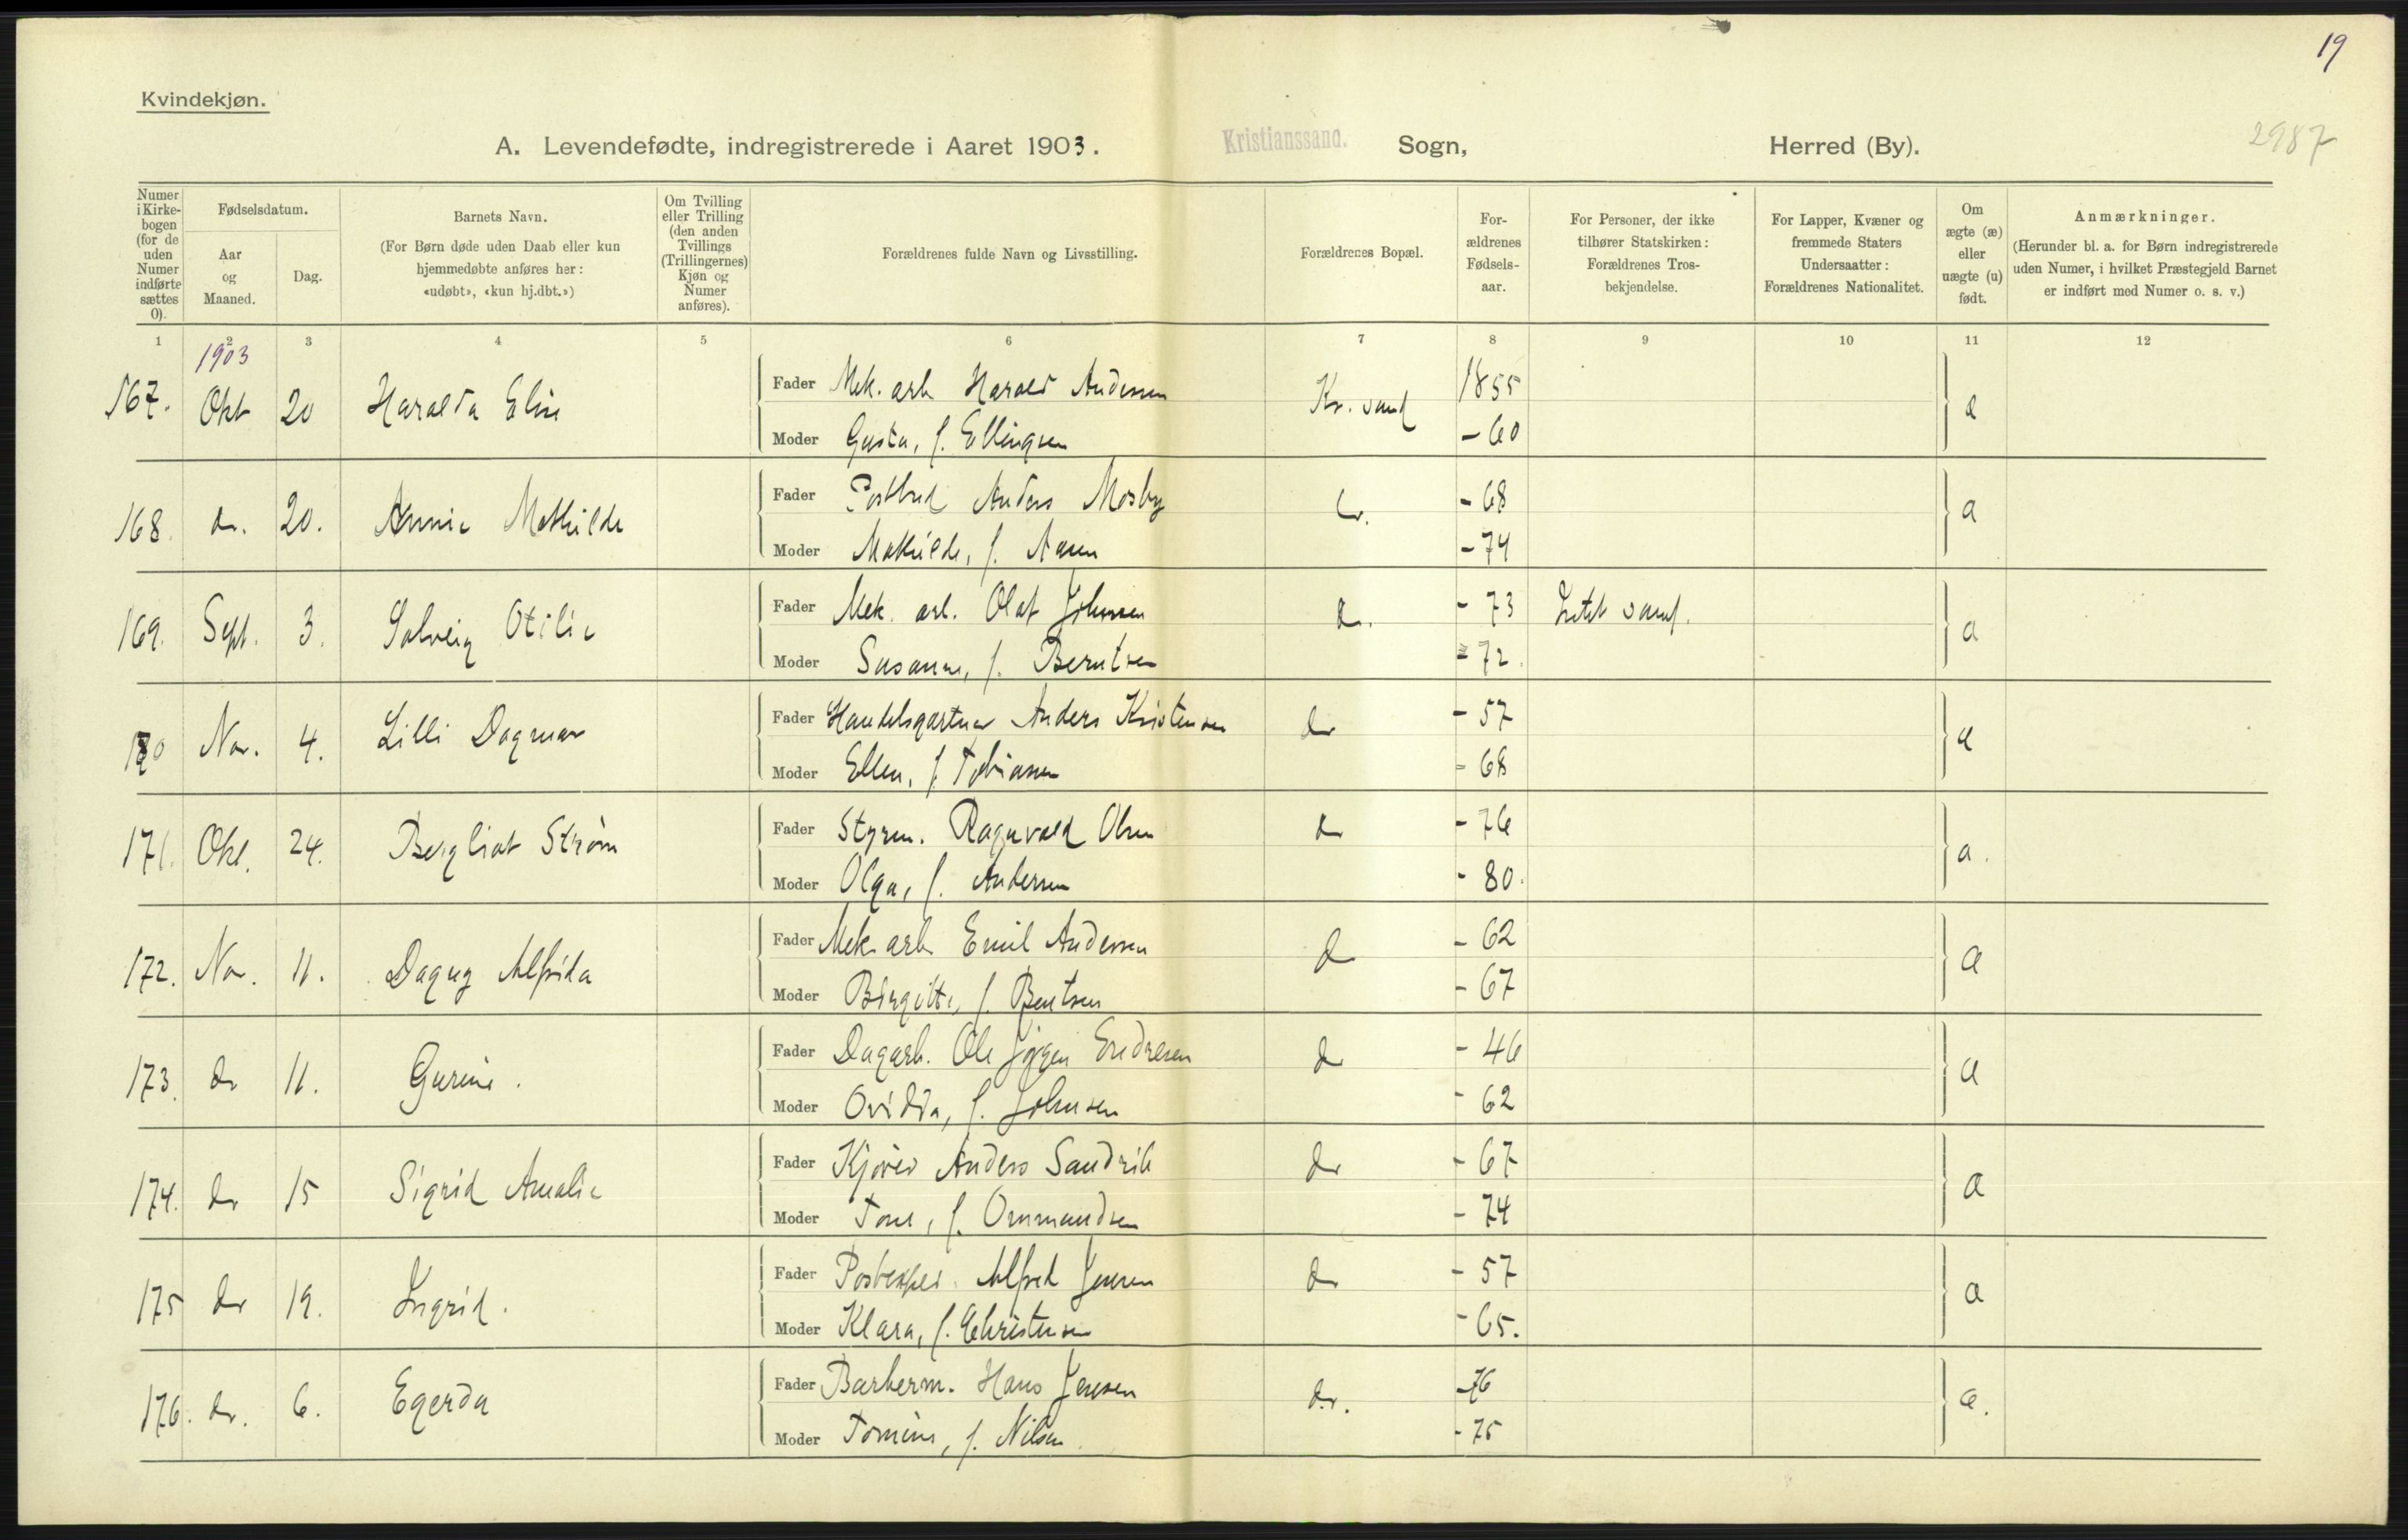 19
Kvindekjøn.
A. Levendefødte, indregistrerede i Aaret 1903. Kristianssand. Sogn, Herred (By).
2987
Numer i Kirkebogen (for de uden Numer indførte sættes 0).
Fødselsdatum.
Aar og Maaned.
Dag.
Barnets Navn.
(For Børn døde uden Daab eller kun hjemmedøbte anføres her: «udøbt», «kun hj.dbt.»)
Om Tvilling eller Trilling (den anden Tvillings (Trillingernes) Kjøn og Numer anføres).
Forældrenes fulde Navn og Livsstilling.
Forældrenes Bopæl.
For-ældrenes Fødsels-aar.
For Personer, der ikke tilhører Statskirken: Forældrenes Tros-bekjendelse.
For Lapper, Kvæner og fremmede Staters Undersaatter: Forældrenes Nationalitet.
Om ægte (æ) eller uægte (u) født.
Anmærkninger.
(Herunder bl. a. for Børn indregistrerede uden Numer, i hvilket Præstegjeld Barnet er indført med Numer o. s. v.)
1 2 3 4 5 6 7 8 9 10 11 12
1903
167. Okt 20 Haralda Elise Fader Mek. arb Harald Andersen Kr. sand 1855 æ
Moder Gusta, f. Ellingsen - 60
168. do. 20. Annie Mathilde Fader Postbud Anders Mosby do. - 68 æ
Moder Mathilde, f. Aasen - 74
169. Sept. 3. Solveig Otilie Fader Mek. arb. Olaf Johnsen do. - 73 æ
Moder Susanne, f. Berntsen - 72.
170 Nov. 4. Lilli Dagmar Fader Handelsgartner Anders Kristensen do - 57 æ
Moder Ellen, f. Tobiasen - 68
171. Okt. 24. Bergliot Strøm Fader Styrm. Ragnvald Olsen do - 76 æ.
Moder Olga, f. Andersen - 80.
172. Nov. 11. Dagny Alfrida Fader Mek arb Emil Andersen do - 62 æ
Moder Birgitte, f. Bentsen - 67
173. do 11. Gurine. Fader Dagarb. Ole Jørgen Endresen do - 46 æ
Moder Ovidia, f. Johnsen - 62
174. do 15 Sigrid Amalie Fader Anders do - 67 æ
Moder Tone, f. Ommundsen - 74
175 do 19. Ingrid. Fader Postexped. Alfred Jensen do - 57 æ
Moder Klara, f. Christensen - 65.
176. do. 6. Egerda Fader Barberm. Hans Jensen do. -76 æ.
Moder Tomine, f. Nilsen. - 75